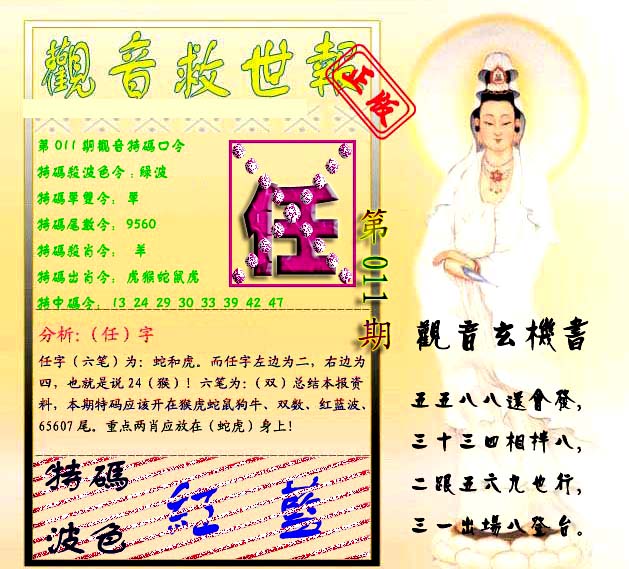 觀音救世報
正版
第011期觀音特碼口令
特碼殺波色令:綠波
特碼單雙令: 單
特碼尾數令: 9560
特碼殺肖令: 羊
特碼出肖令: 虎猴蛇鼠虎
特中碼令: 13 24 29 30 33 39 42 47
任
第011期
分析:(任)字
任字(六笔)为:蛇和虎。而任字左边为二,右边为
四,也就是说24(猴)!六笔为:(双)总结本报资
料,本期特码应该开在猴虎蛇鼠狗牛、双数、红蓝波、
65607尾。重点两肖应放在(蛇虎)身上!
特碼
波色
紅 藍
觀音玄機書
五五八八還會發,
三十三四相拌八,
二跟五六九也行,
三一出場八登台。